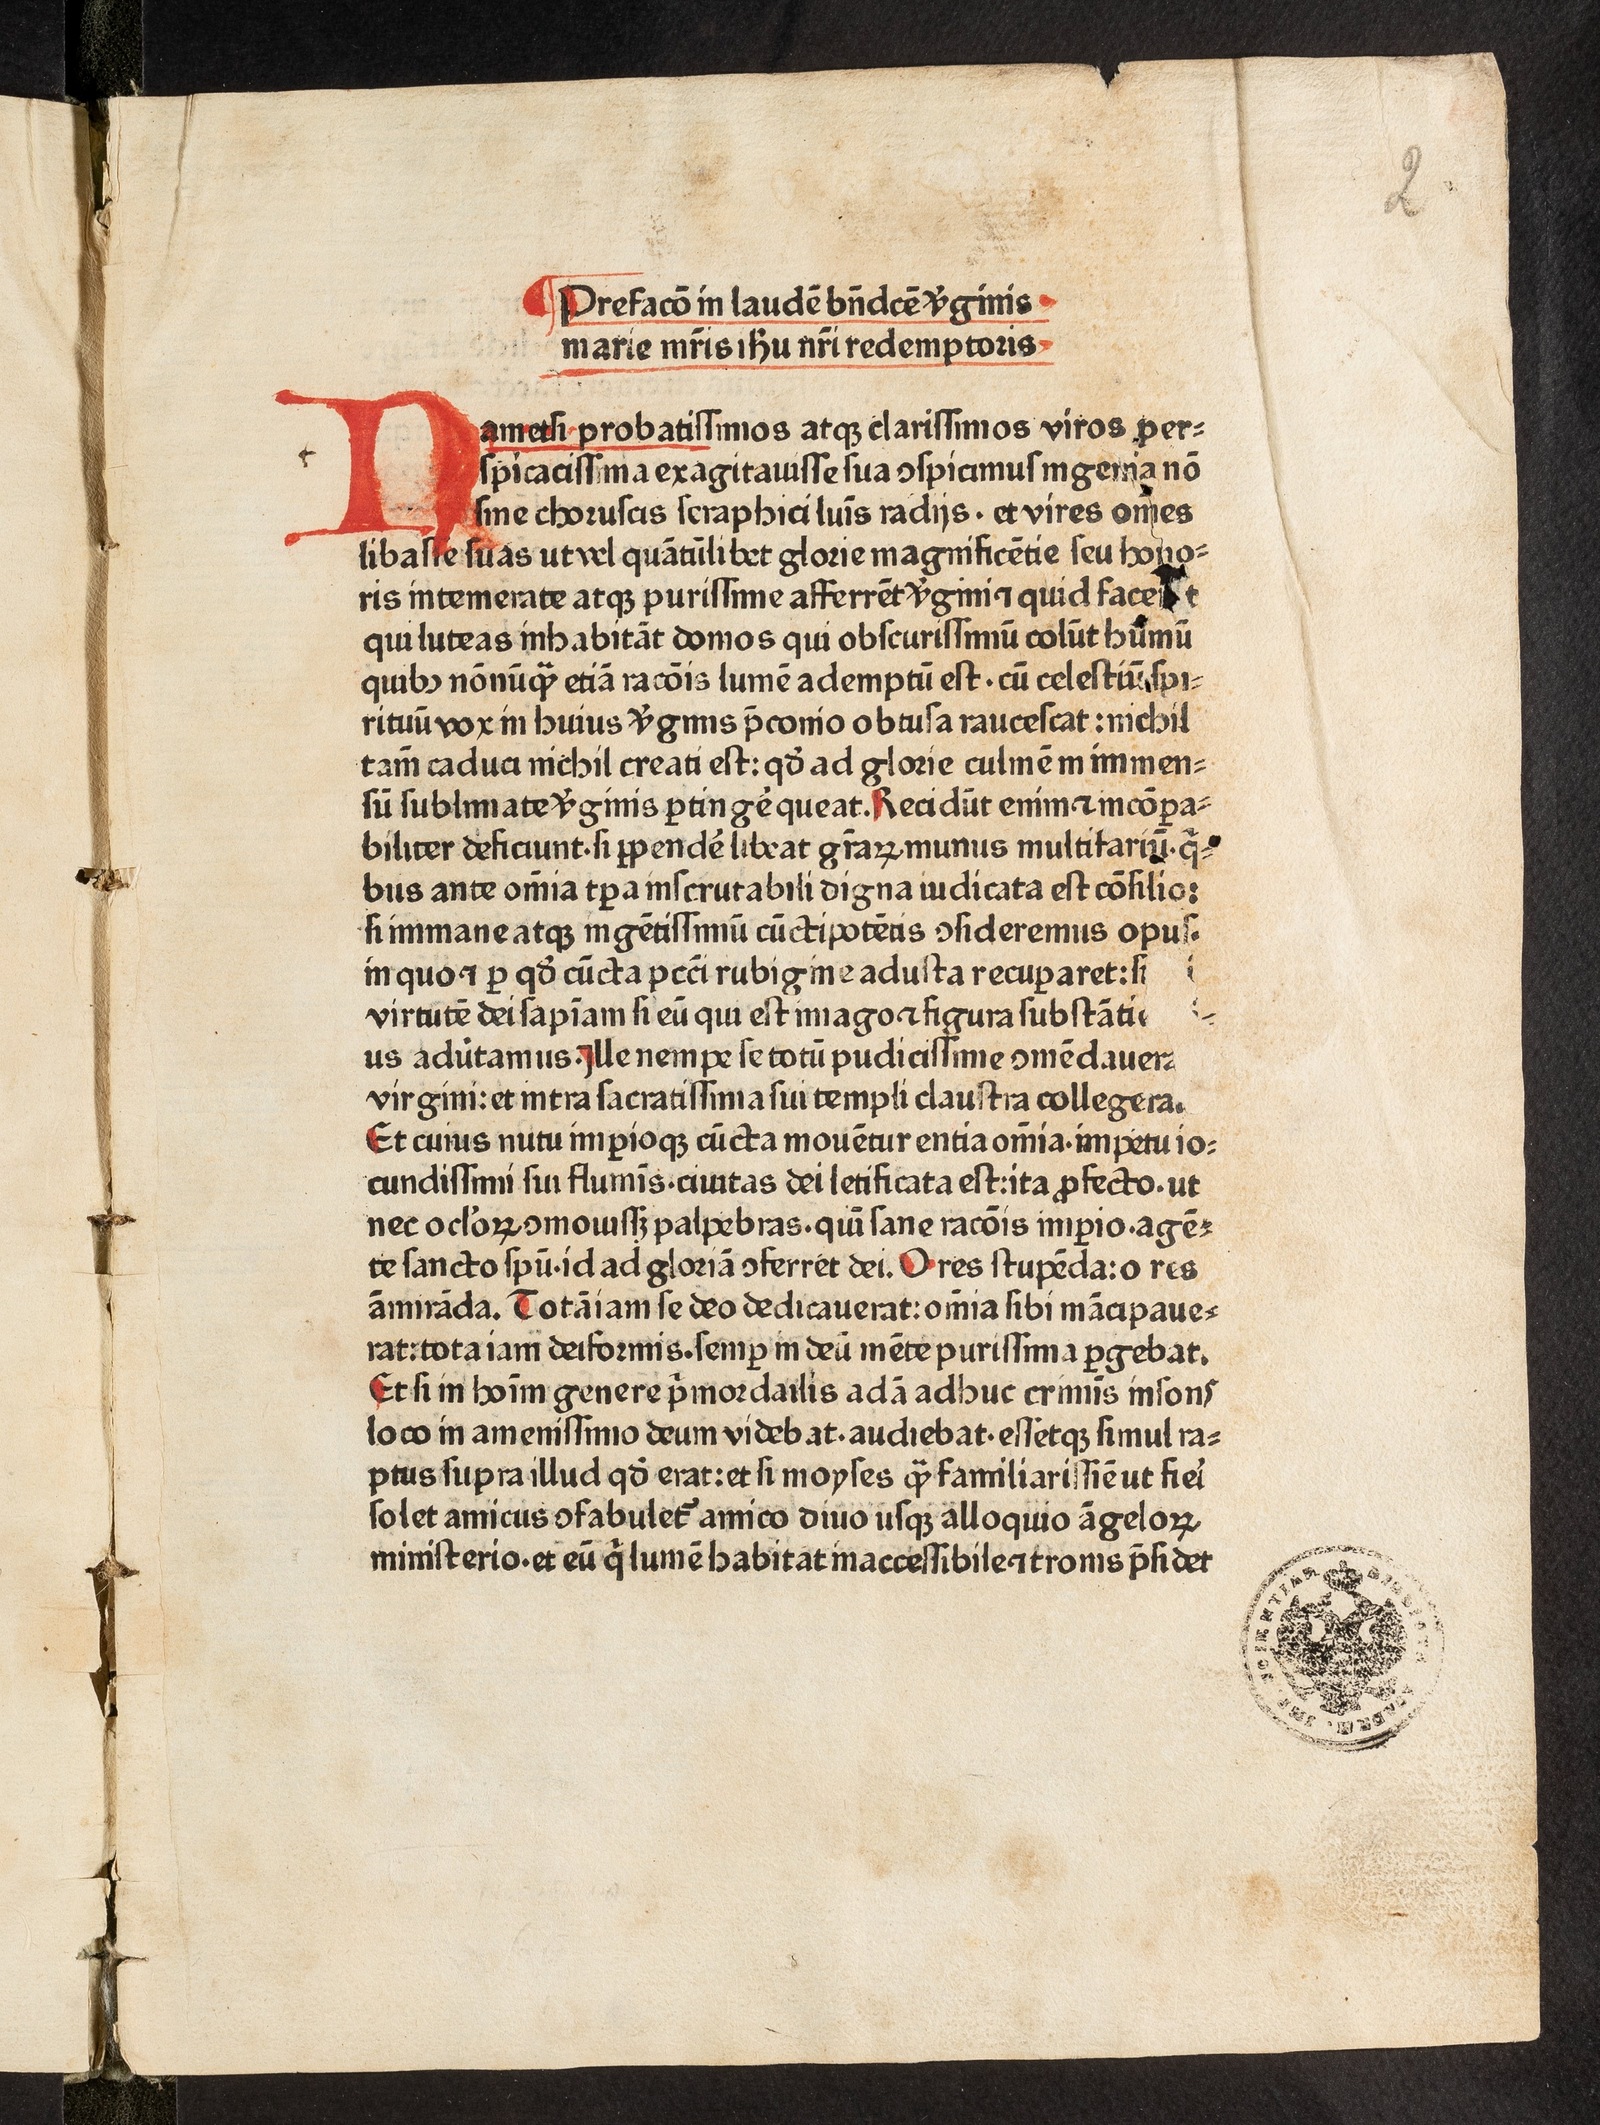 2
Prefacō in laudē bn̄dcē v̓ginis
marie mr̄is ihū nr̄i redemptoris
Nametsi probatissimos atqꝫ clarissimos viros per⸗
spicacissima exagitauisse sua ꝯspicimus ingenia nō
sine choruscis seraphici luīs radijs · et vires om̄es
libasse suas ut vel quātūlibet glorie magnificētie seu hono⸗
ris intemerate atqꝫ purissime afferrēt v̓gini ⁊ quid
qui luteas inhabitāt domos qui obscurissimū colūt humū
quibꝯ nōnūqꝫ̄ etiā racōis lumē ademptū est · cū celestiū spi⸗
rituū vox in huius v̓ginis p̄conio obtusa raucescat : nichil
tam̄ caduci nichil creati est: qđ ad glorie culmē in immen⸗
sū sublimate v̓ginis ꝑtingē queat. Recidūt enim ⁊ incōꝑa⸗
biliter deficiunt· si ꝑpendē libeat gr̄aꝝ munus multifariū· q̄⸗
bus ante om̄ia tꝑa inscrutabili digna iudicata est cōsilio:
si immane atqꝫ ingētissimū cūctipotētis ꝯsideremus opus·
in quo ⁊ ꝑ qđ cūcta pcc̄i rubigine adusta recuꝑaret: si
virtutē dei sapīam si eū qui est imago ⁊ figura
us adūtamus. Ille nempe se totū pudicissime ꝯmēdauera
virgini: et intra sacratissima sui templi claustra collegera
Et cuius nutu imꝑioqꝫ cūcta mouētur entia om̄ia· impetu io⸗
cundissimi sui flumīs· ciuitas dei letificata est: ita ꝓfecto· ut
nec ocl̓oꝝ ꝯmouissꝫ palpebras· quī sane racōis imꝑio· agē⸗
te sancto spū· id ad gloriā ꝯferret dei. O res stupēda: o res
āmirāda. Totā iam se deo dedicauerat: om̄ia sibi mācipaue⸗
rat: tota iam deiformis. semꝑ in deū mēte purissima ꝑgebat.
Et si in hoīm genere p̓mordailis adā adhuc crimīs insons
loco in amenissimo deum videbat· audiebat· essetqꝫ simul ra⸗
ptus supra illud qđ erat: et si moyses qꝫ̄ familiarissiē ut fiei
solet amicus ꝯfabulet᷑ amico diuo usqꝫ alloquio āgeloꝝ
ministerio· et eū q̓ lumē habitat inaccessibile ⁊ tronis p̄sidet